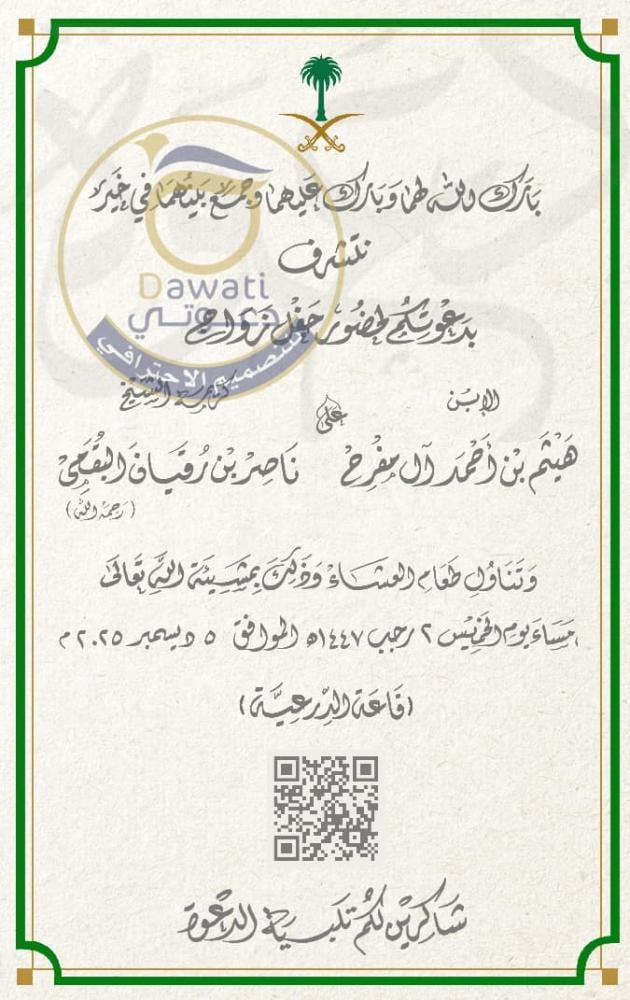 بارك الله لهما وبارك عليهما وجمع بينهما في خير
نتشرف
Dawati
دعوتي
للتصميم الاحترافي
بدعوتكم لحضور حفل زواج
الابن
على
كريمة الشيخ
هيثم بن أحمد آل مفرح
ناصر بن رقيان البقمي
(رحمه الله)
وتناول طعام العشاء وذلك بمشيئة الله تعالى
مساء يوم الخميس ٢ رجب ١٤٤٧ه الموافق ٥ ديسمبر ٢٠٢٥م
(قاعة الدرعية)
شاكرين لكم تلبية الدعوة